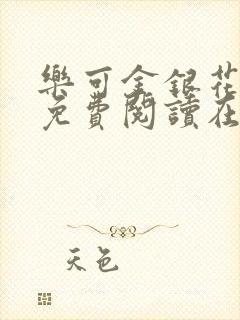 樂可金銀花
免費閱讀在
天色